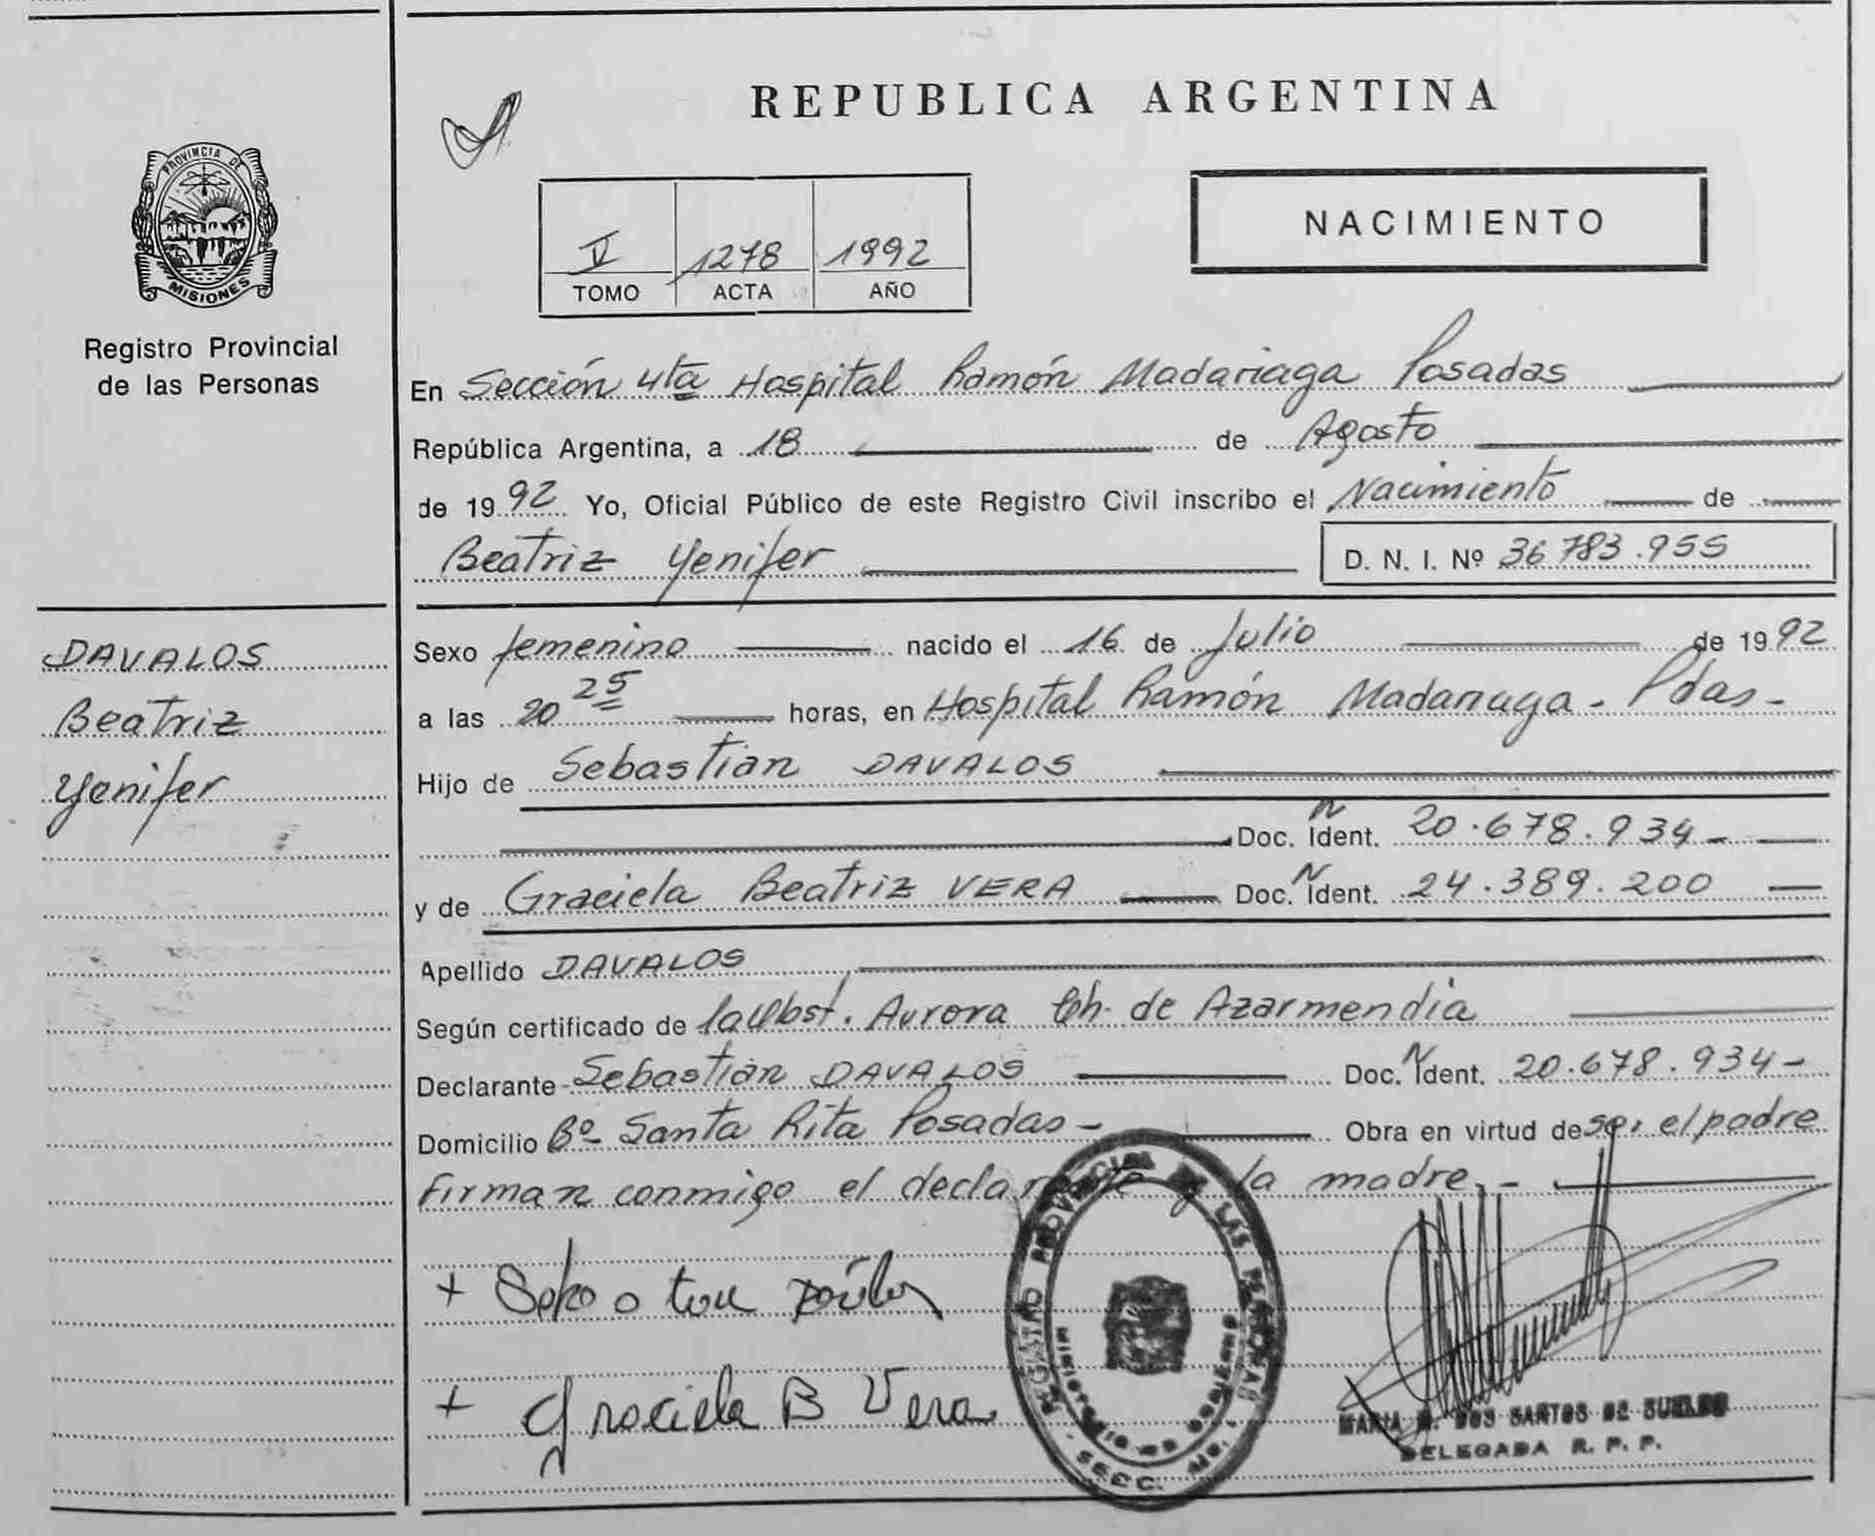 PROVINCIA DE
MISIONES
Registro Provincial
de las Personas
DAVALOS
Beatriz
Yenifer
REPUBLICA ARGENTINA
V 1278 1992
TOMO ACTA AÑO
NACIMIENTO
En Sección 4ta Hospital Ramón Madariaga Posadas
República Argentina, a 18 de Agosto
de 1992 Yo, Oficial Público de este Registro Civil inscribo el Nacimiento de
Beatriz Yenifer D. N. I. Nº 36 783.955
Sexo femenino nacido el 16 de Julio de 1992
a las 20 25 horas, en Hospital Ramón Madariaga - Pdas -
Hijo de Sebastian DAVALOS
Doc. N Ident. 20.678.934 -
y de Graciela Beatriz VERA Doc. N Ident. 24.389.200
Apellido DAVALOS
Según certificado de la Obst. Aurora de Azarmendia
Declarante Sebastian DAVALOS Doc. N Ident. 20.678.934 -
Domicilio Bº Santa Rita Posadas - Obra en virtud de ser el padre
Firman conmigo el declarante y la madre. -
+
+ Graciela B Vera
REGISTRO PROVINCIAL DE LAS PERSONAS
MINISTERIO DE GOBIERNO
SECC.
MARIA DOS SANTOS DE
DELEGADA R. P. P.